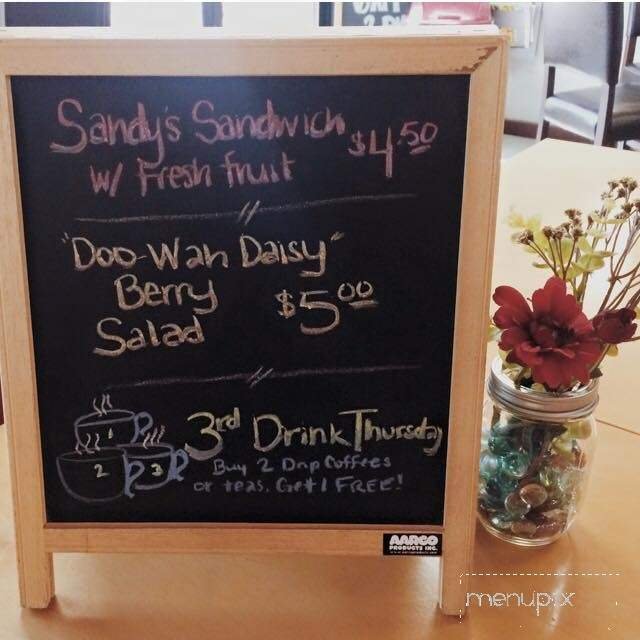 Sandy's Sandwich $4.50
w/ Fresh fruit
"Doo-Wah Daisy"
Berry $5.00
Salad
1
2 3
3rd Drink Thursday
Buy 2 Drip Coffees
or teas, Get 1 FREE!
AARCO
PRODUCTS INC.
menupix